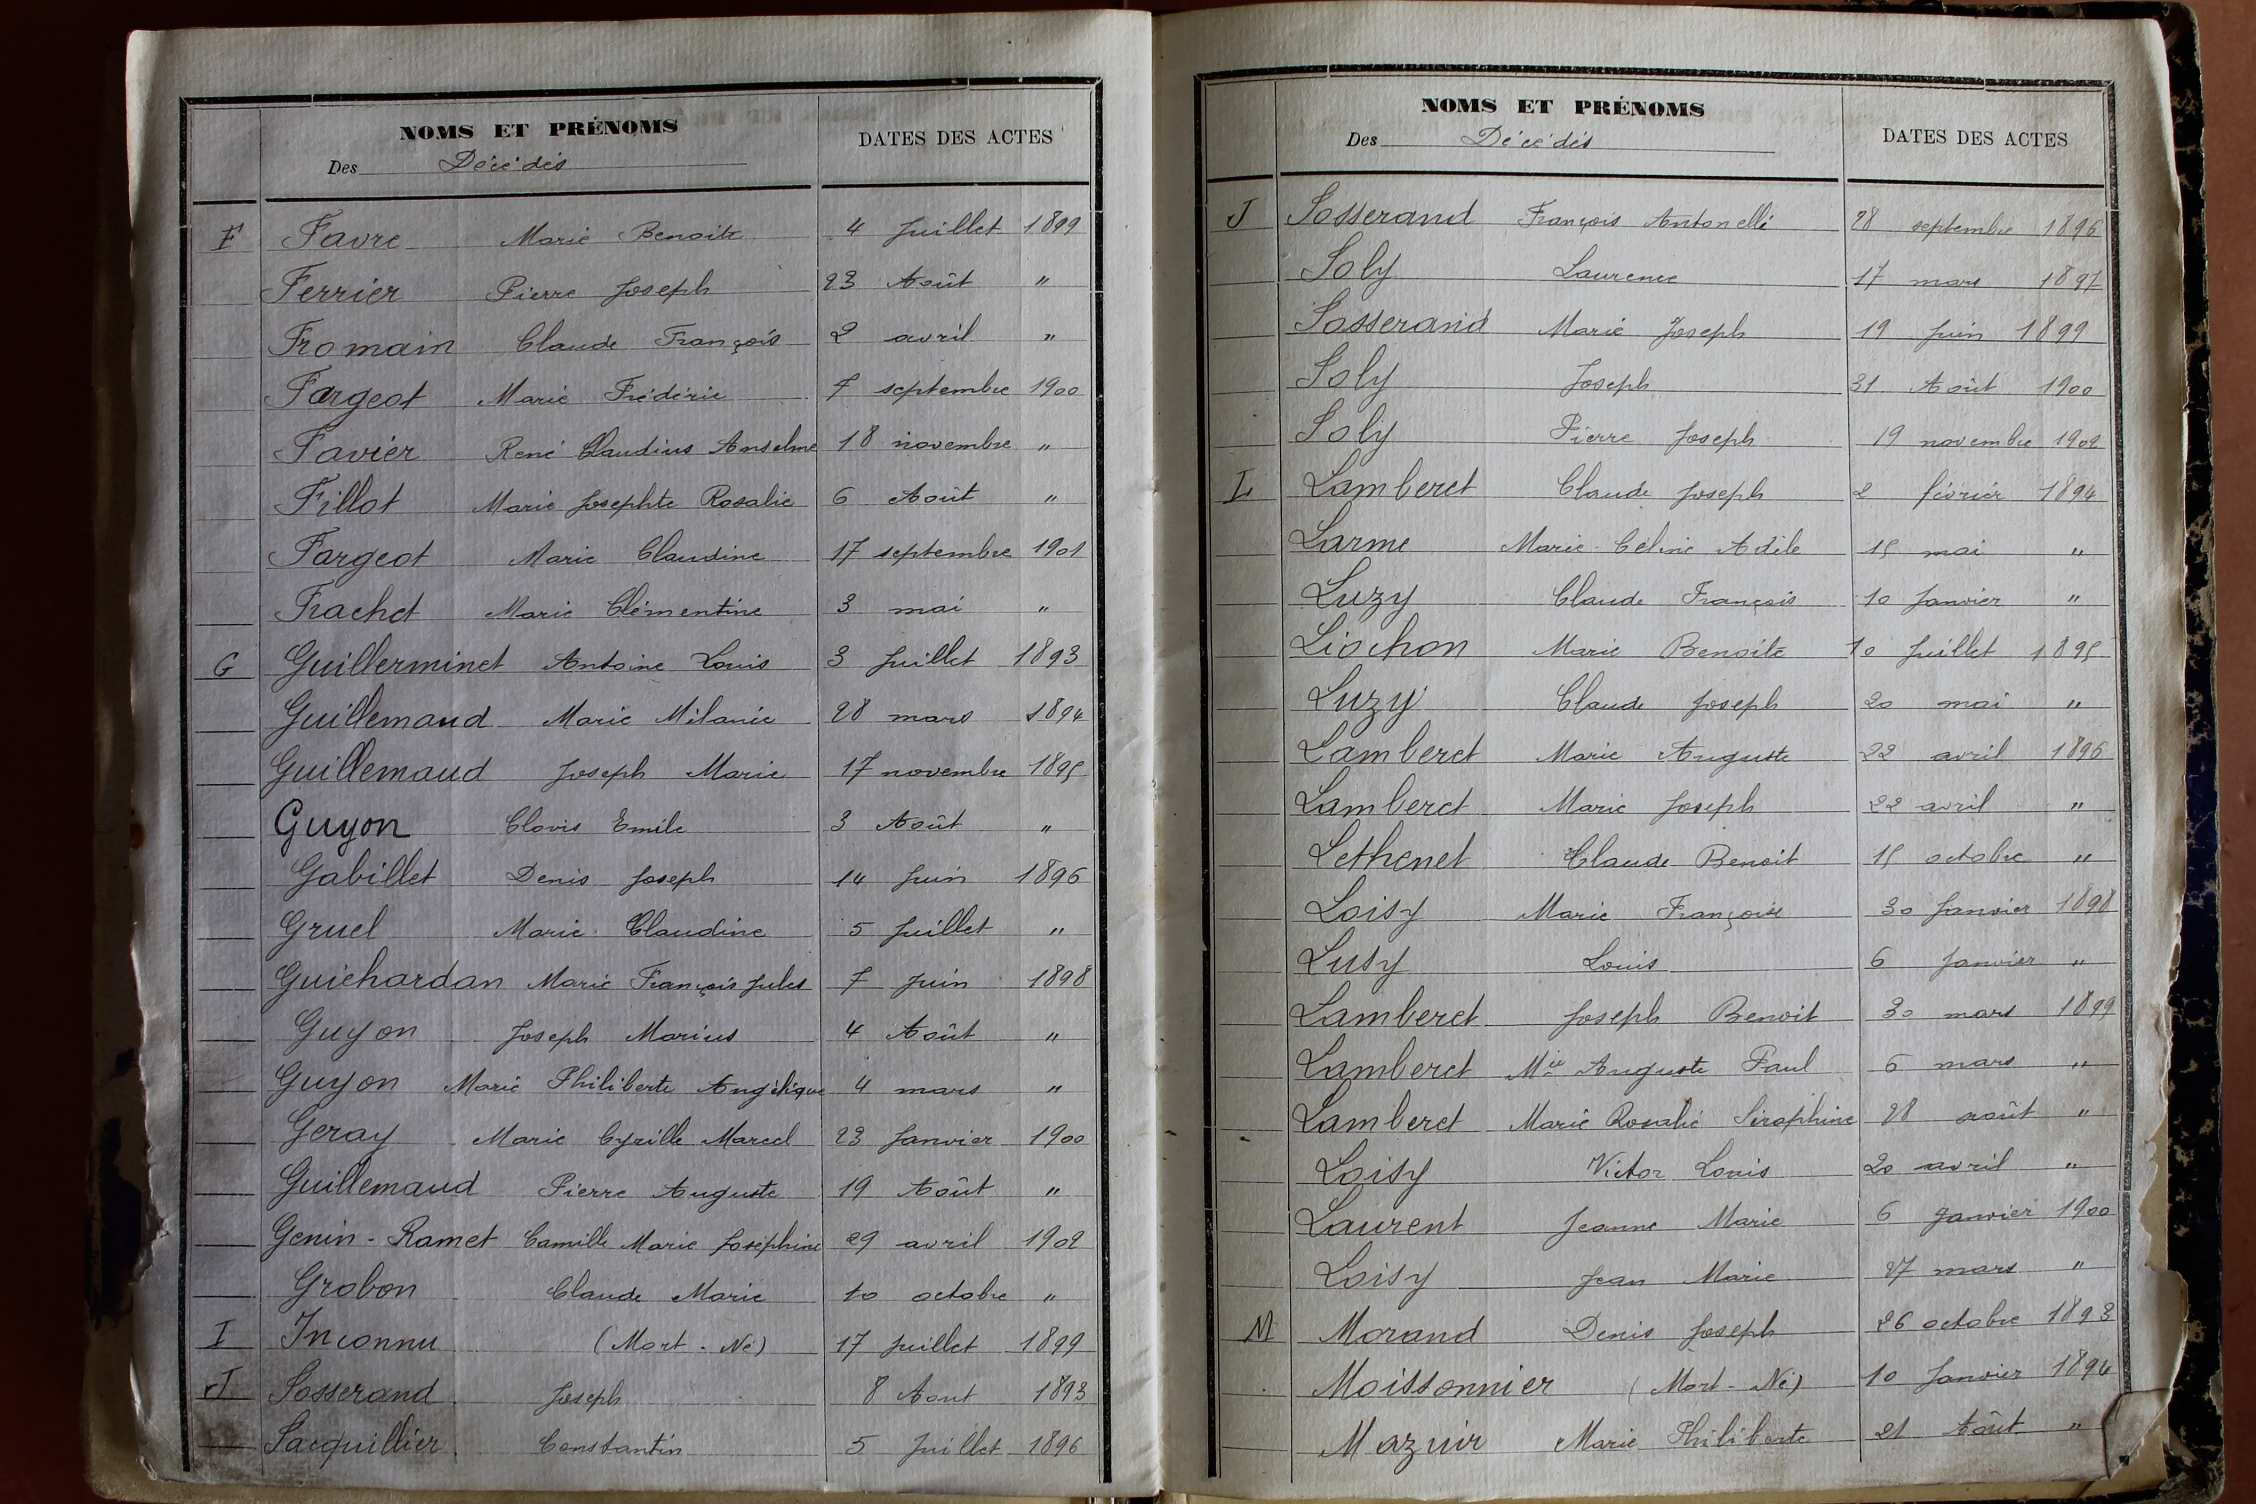 NOMS ET PRÉNOMS
Des Décédés
DATES DES ACTES
F Favre Marie Benoite 4 Juillet 1899
Ferrier Pierre Joseph 23 Août "
Fromain Claude François 2 avril "
Fargeot Marie Frédéric 7 septembre 1900
Favier René Claudius Anselme 18 novembre "
Fillot Marie Josephte Rosalie 6 Août "
Fargeot Marie Claudine 17 septembre 1901
Frachet Marie Clémentine 3 mai "
G Guillerminet Antoine Louis 3 Juillet 1893
Guillemaud Marie Mélanie 28 mars 1894
Guillemaud Joseph Marie 17 novembre 1895
Guyon Clovis Emile 3 Août "
Gabillet Denis Joseph 14 Juin 1896
Gruel Marie Claudine 5 Juillet "
Guichardan Marie François Jules 7 Juin 1898
Guyon Joseph Marius 4 Août "
Guyon Marie Philiberte Angélique 4 mars "
Geray Marie Cyrille Marcel 23 Janvier 1900
Guillemaud Pierre Auguste 19 Août "
Genin-Ramet Camille Marie Joséphine 29 avril 1902
Grobon Claude Marie 10 octobre "
I Inconnu (Mort-Né) 17 Juillet 1899
J Josserand Joseph 8 Aout 1893
Jacquillier Constantin 5 Juillet 1896
NOMS ET PRÉNOMS
Des Décédés
DATES DES ACTES
J Josserand François Antonelli 28 septembre 1896
Joly Laurence 17 mars 1897
Josserand Marie Joseph 19 Juin 1899
Joly Joseph 31 Août 1900
Joly Pierre Joseph 19 novembre 1902
L Lamberet Claude Joseph 2 février 1894
Larme Marie Céline Adèle 15 mai "
Luzy Claude François 10 Janvier "
Liochon Marie Benoite 10 Juillet 1895
Luzy Claude Joseph 20 mai "
Lamberet Marie Auguste 22 avril 1896
Lamberet Marie Joseph 22 avril "
Lethenet Claude Benoit 15 octobre "
Loisy Marie Françoise 30 Janvier 1898
Lusy Louis 6 Janvier "
Lamberet Joseph Benoit 30 mars 1899
Lamberet Mie Auguste Paul 6 mars "
Lamberet Marie Rosalie Séraphine 28 août "
Loisy Victor Louis 20 avril "
Laurent Jeanne Marie 6 Janvier 1900
Loisy Jean Marie 27 mars "
M Morand Denis Joseph 26 octobre 1893
Moissonnier (Mort-Né) 10 Janvier 1894
Mazuir Marie Philiberte 21 Août "